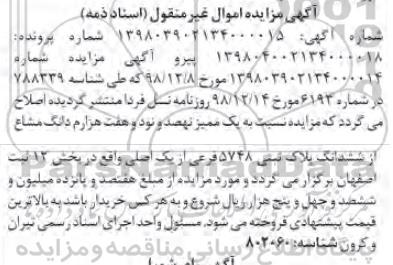 آگهی مزایده اموال غیر منقول (اسناد ذمه)
شماره آگهی: ۱۳۹۸۰۳۹۰۲۱۳۴۰۰۰۰۱۵ شماره پرونده:
۱۳۹۸۰۴۰۰۲۱۳۴۰۰۰۰۱۸ پیرو آگهی مزایده شماره
۱۳۹۸۰۳۹۰۲۱۳۴۰۰۰۰۱۴ مورخ ۹۸/۱۲/۸ که طی شناسه ۷۸۸۳۳۹
در شماره ۶۱۹۳ مورخ ۹۸/۱۲/۱۴ روزنامه نسل فردا منتشر گردیده اصلاح
می گردد که مزایده نسبت به یک ممیز نهصد و نود و هفت هزارم دانگ مشاع
از ششدانگ پلاک ثبتی ۵۷۴۸ فرعی از یک اصلی واقع در بخش ۱۲ ثبت
اصفهان برگزار می گردد و مورد مزایده از مبلغ هفتصد و پانزده میلیون و
ششصد و چهل و پنج هزار ریال شروع و به هر کس خریدار باشد به بالاترین
قیمت پیشنهادی فروخته می شود. مسئول واحد اجرای اسناد رسمی تیران
و کرون شناسه: ۸۰۲۰۶۰